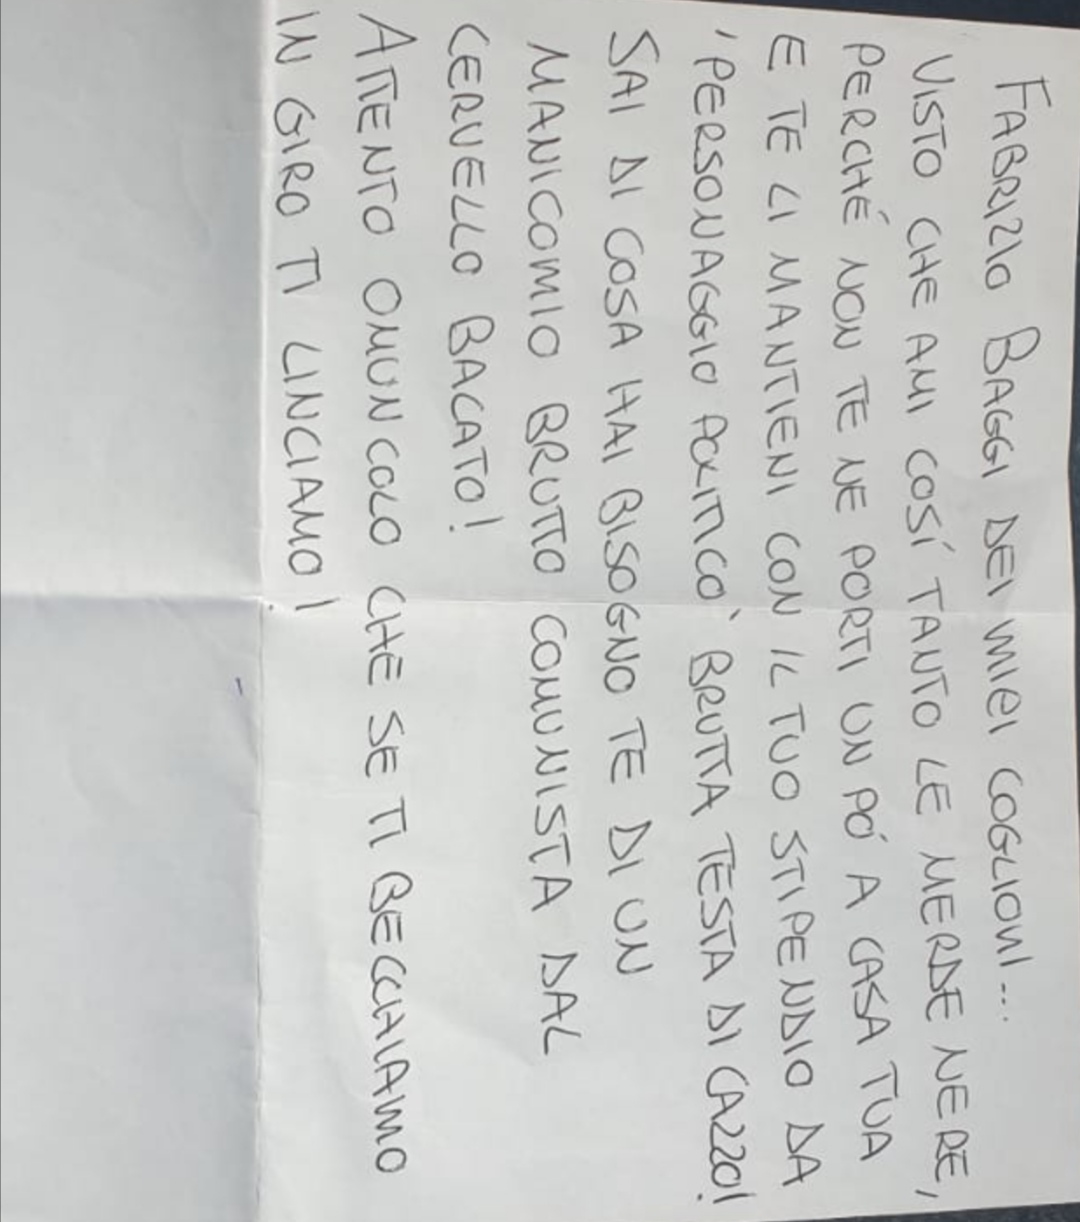 FABRIZIO BAGGI DEI MIEI COGLIONI...
VISTO CHE AMI COSÍ TANTO LE MERDE NERE,
PERCHÉ NON TE NE PORTI UN PÓ A CASA TUA
E TE LI MANTIENI CON IL TUO STIPENDIO DA
'PERSONAGGIO POLITICO' BRUTTA TESTA DI CAZZO!
SAI DI COSA HAI BISOGNO TE DI UN
MANICOMIO BRUTTO COMUNISTA DAL
CERVELLO BACATO!
ATTENTO OMUNCOLO CHE SE TI BECCHIAMO
IN GIRO TI LINCIAMO!